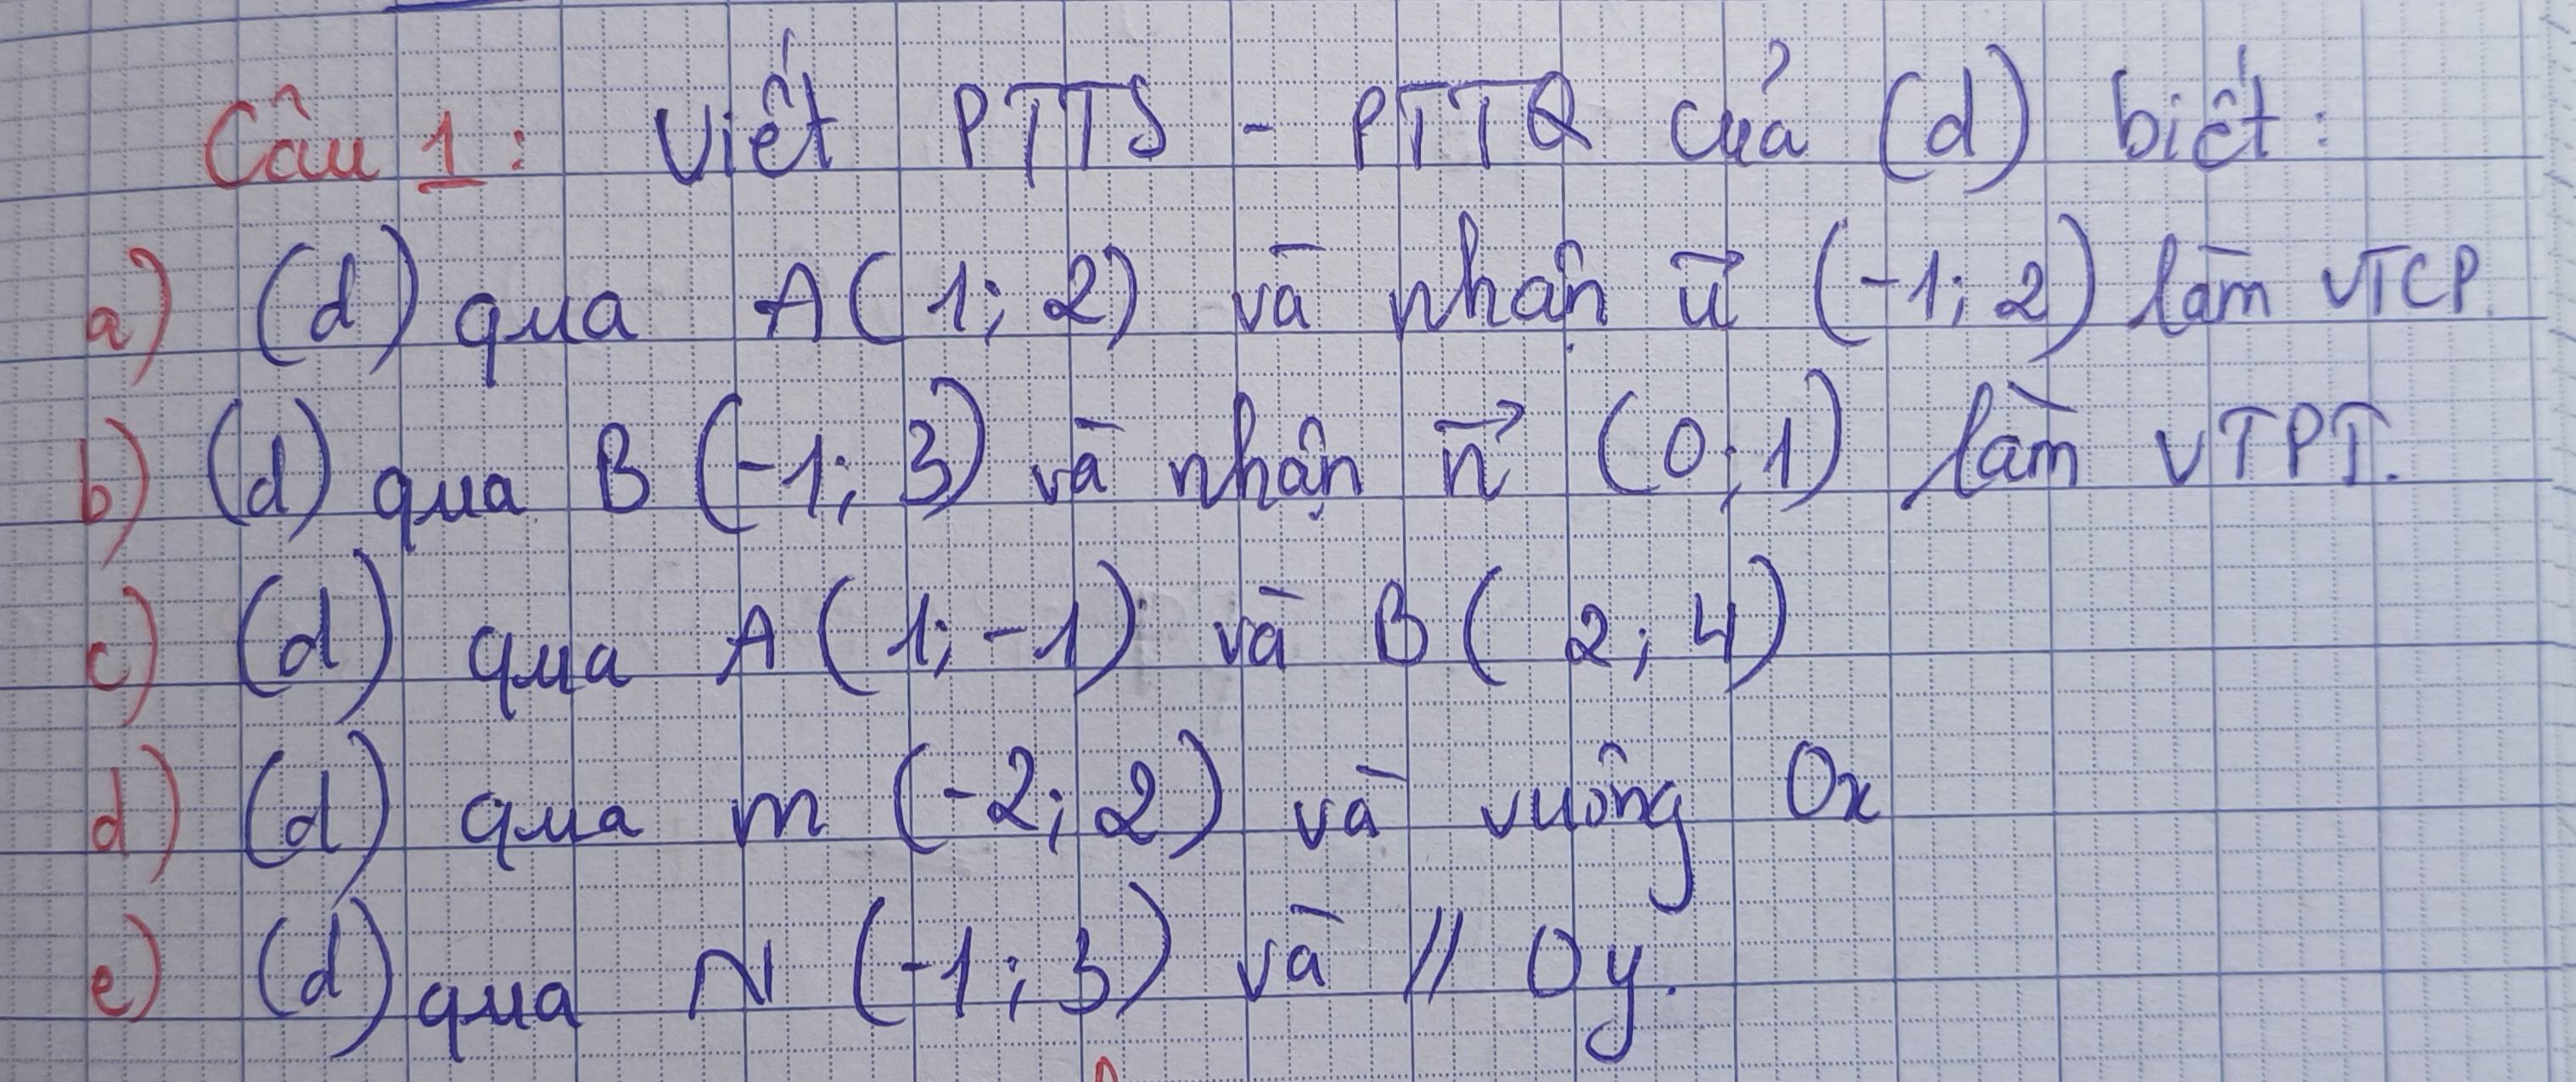 Câu 1: Viết PTTS - PTTQ của (d) biết:
a) (d) qua A(1; 2) và nhận u⃗ (-1; 2) làm VTCP.
b) (d) qua B (-1; 3) và nhận n⃗ (0; 1) làm VTPT.
c) (d) qua A (1; -1) và B (2; 4)
d) (d) qua M (-2; 2) và vuông Ox
e) (d) qua N (-1; 3) và // Oy.